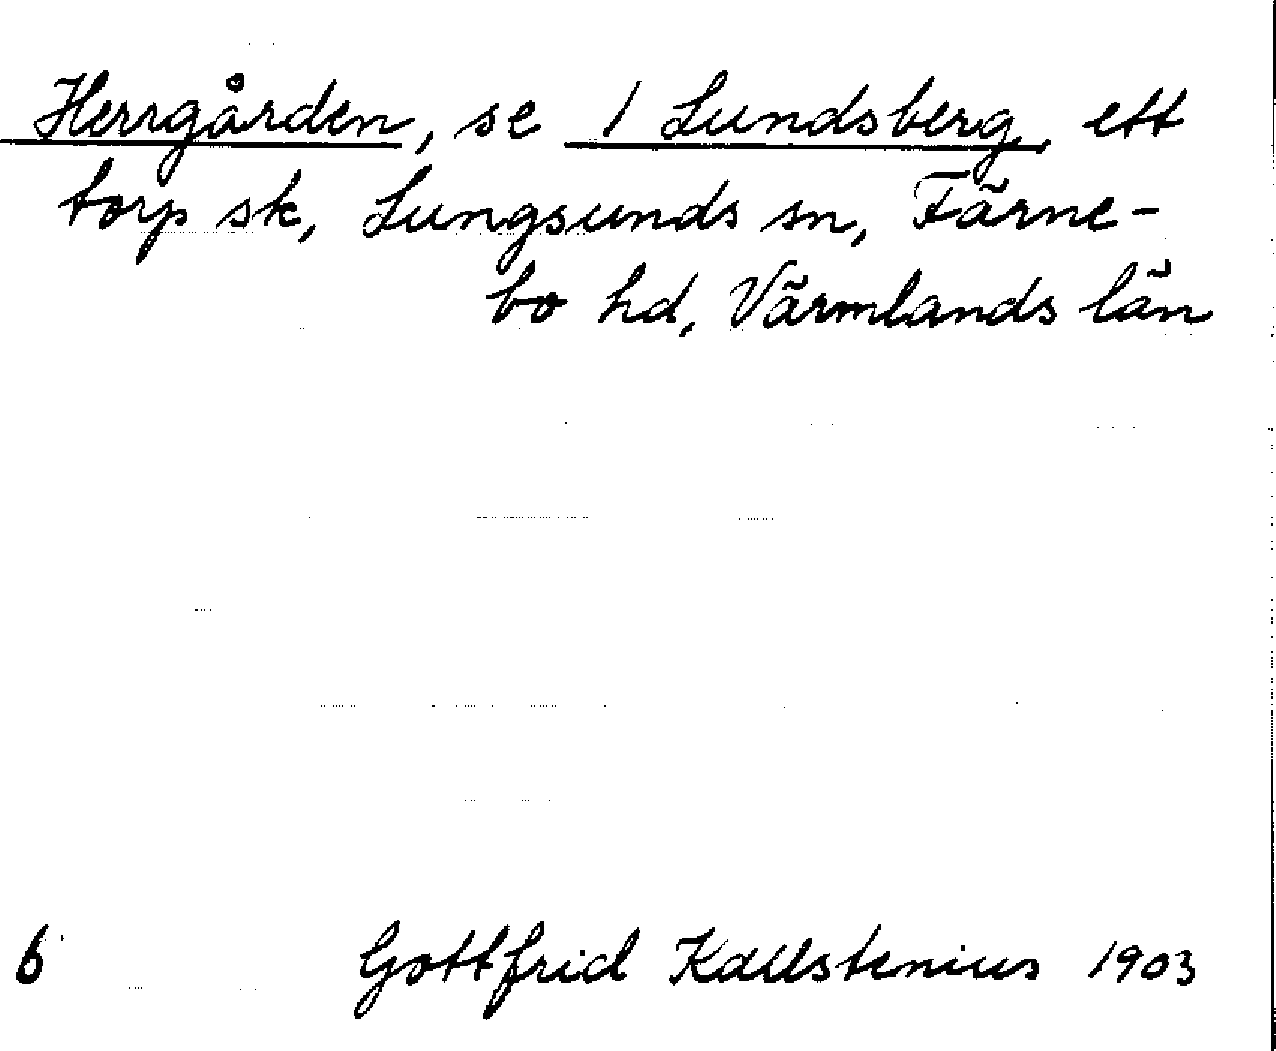 Herrgården, se 1 Lundsberg, ett
torp sk, Lungsunds sn, Färne-
bo hd, Värmlands län
6 Gottfrid Kallstenius 1903